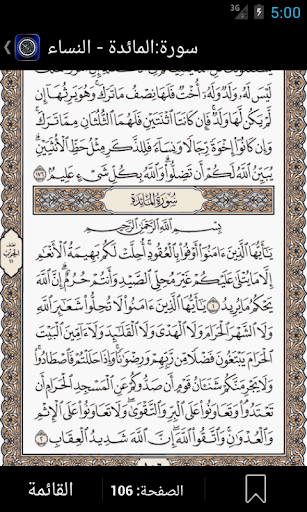 3G 5:00
سورة:المائدة - النساء
لَيْسَ لَهُۥ وَلَدٌ وَلَهُۥٓ أُخْتٌ فَلَهَا نِصْفُ مَا تَرَكَ وَهُوَ يَرِثُهَآ إِن
لَّمْ يَكُن لَّهَا وَلَدٌ فَإِن كَانَتَا ٱثْنَتَيْنِ فَلَهُمَا ٱلثُّلُثَانِ مِمَّا تَرَكَ
وَإِن كَانُوٓا۟ إِخْوَةً رِّجَالًا وَنِسَآءً فَلِلذَّكَرِ مِثْلُ حَظِّ ٱلْأُنثَيَيْنِ
يُبَيِّنُ ٱللَّهُ لَكُمْ أَن تَضِلُّوا۟ وَٱللَّهُ بِكُلِّ شَىْءٍ عَلِيمٌۢ ١٧٦
سُورَةُ المَائِدَةِ
بِسْمِ ٱللَّهِ ٱلرَّحْمَٰنِ ٱلرَّحِيمِ
يَٰٓأَيُّهَا ٱلَّذِينَ ءَامَنُوٓا۟ أَوْفُوا۟ بِٱلْعُقُودِ أُحِلَّتْ لَكُم بَهِيمَةُ ٱلْأَنْعَٰمِ
إِلَّا مَا يُتْلَىٰ عَلَيْكُمْ غَيْرَ مُحِلِّى ٱلصَّيْدِ وَأَنتُمْ حُرُمٌ إِنَّ ٱللَّهَ
يَحْكُمُ مَا يُرِيدُ ١ يَٰٓأَيُّهَا ٱلَّذِينَ ءَامَنُوا۟ لَا تُحِلُّوا۟ شَعَٰٓئِرَ ٱللَّهِ
وَلَا ٱلشَّهْرَ ٱلْحَرَامَ وَلَا ٱلْهَدْىَ وَلَا ٱلْقَلَٰٓئِدَ وَلَآ ءَآمِّينَ ٱلْبَيْتَ
ٱلْحَرَامَ يَبْتَغُونَ فَضْلًا مِّن رَّبِّهِمْ وَرِضْوَٰنًا وَإِذَا حَلَلْتُمْ فَٱصْطَادُوا۟
وَلَا يَجْرِمَنَّكُمْ شَنَـَٔانُ قَوْمٍ أَن صَدُّوكُمْ عَنِ ٱلْمَسْجِدِ ٱلْحَرَامِ أَن
تَعْتَدُوا۟ وَتَعَاوَنُوا۟ عَلَى ٱلْبِرِّ وَٱلتَّقْوَىٰ وَلَا تَعَاوَنُوا۟ عَلَى ٱلْإِثْمِ
وَٱلْعُدْوَٰنِ وَٱتَّقُوا۟ ٱللَّهَ إِنَّ ٱللَّهَ شَدِيدُ ٱلْعِقَابِ ٢
نصف
الحزب
١١
القائمة الصفحة: 106